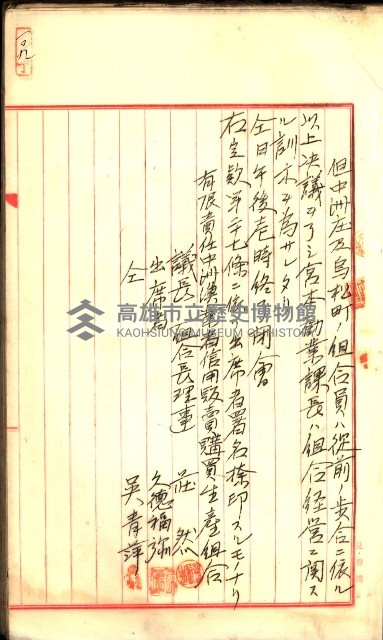 但中洲庄及烏松町ノ組合員ハ從前ノ步合ニ依ル
以上決議ヲ了シ宮本勸業課長ハ組合經營ニ関ス
ル訓示ヲ為サレタリ
仝日午後壱時終了閉會
右定款第二十七條ニ依リ出席者署名捺印スルモノナリ
有限責任中洲漁業者信用販賣購買生產組合
議長 組合長理事 莊然
出席者 久德福弥
仝 吳青萍
高雄市立歷史博物館
KAOHSIUNG MUSEUM OF HISTORY